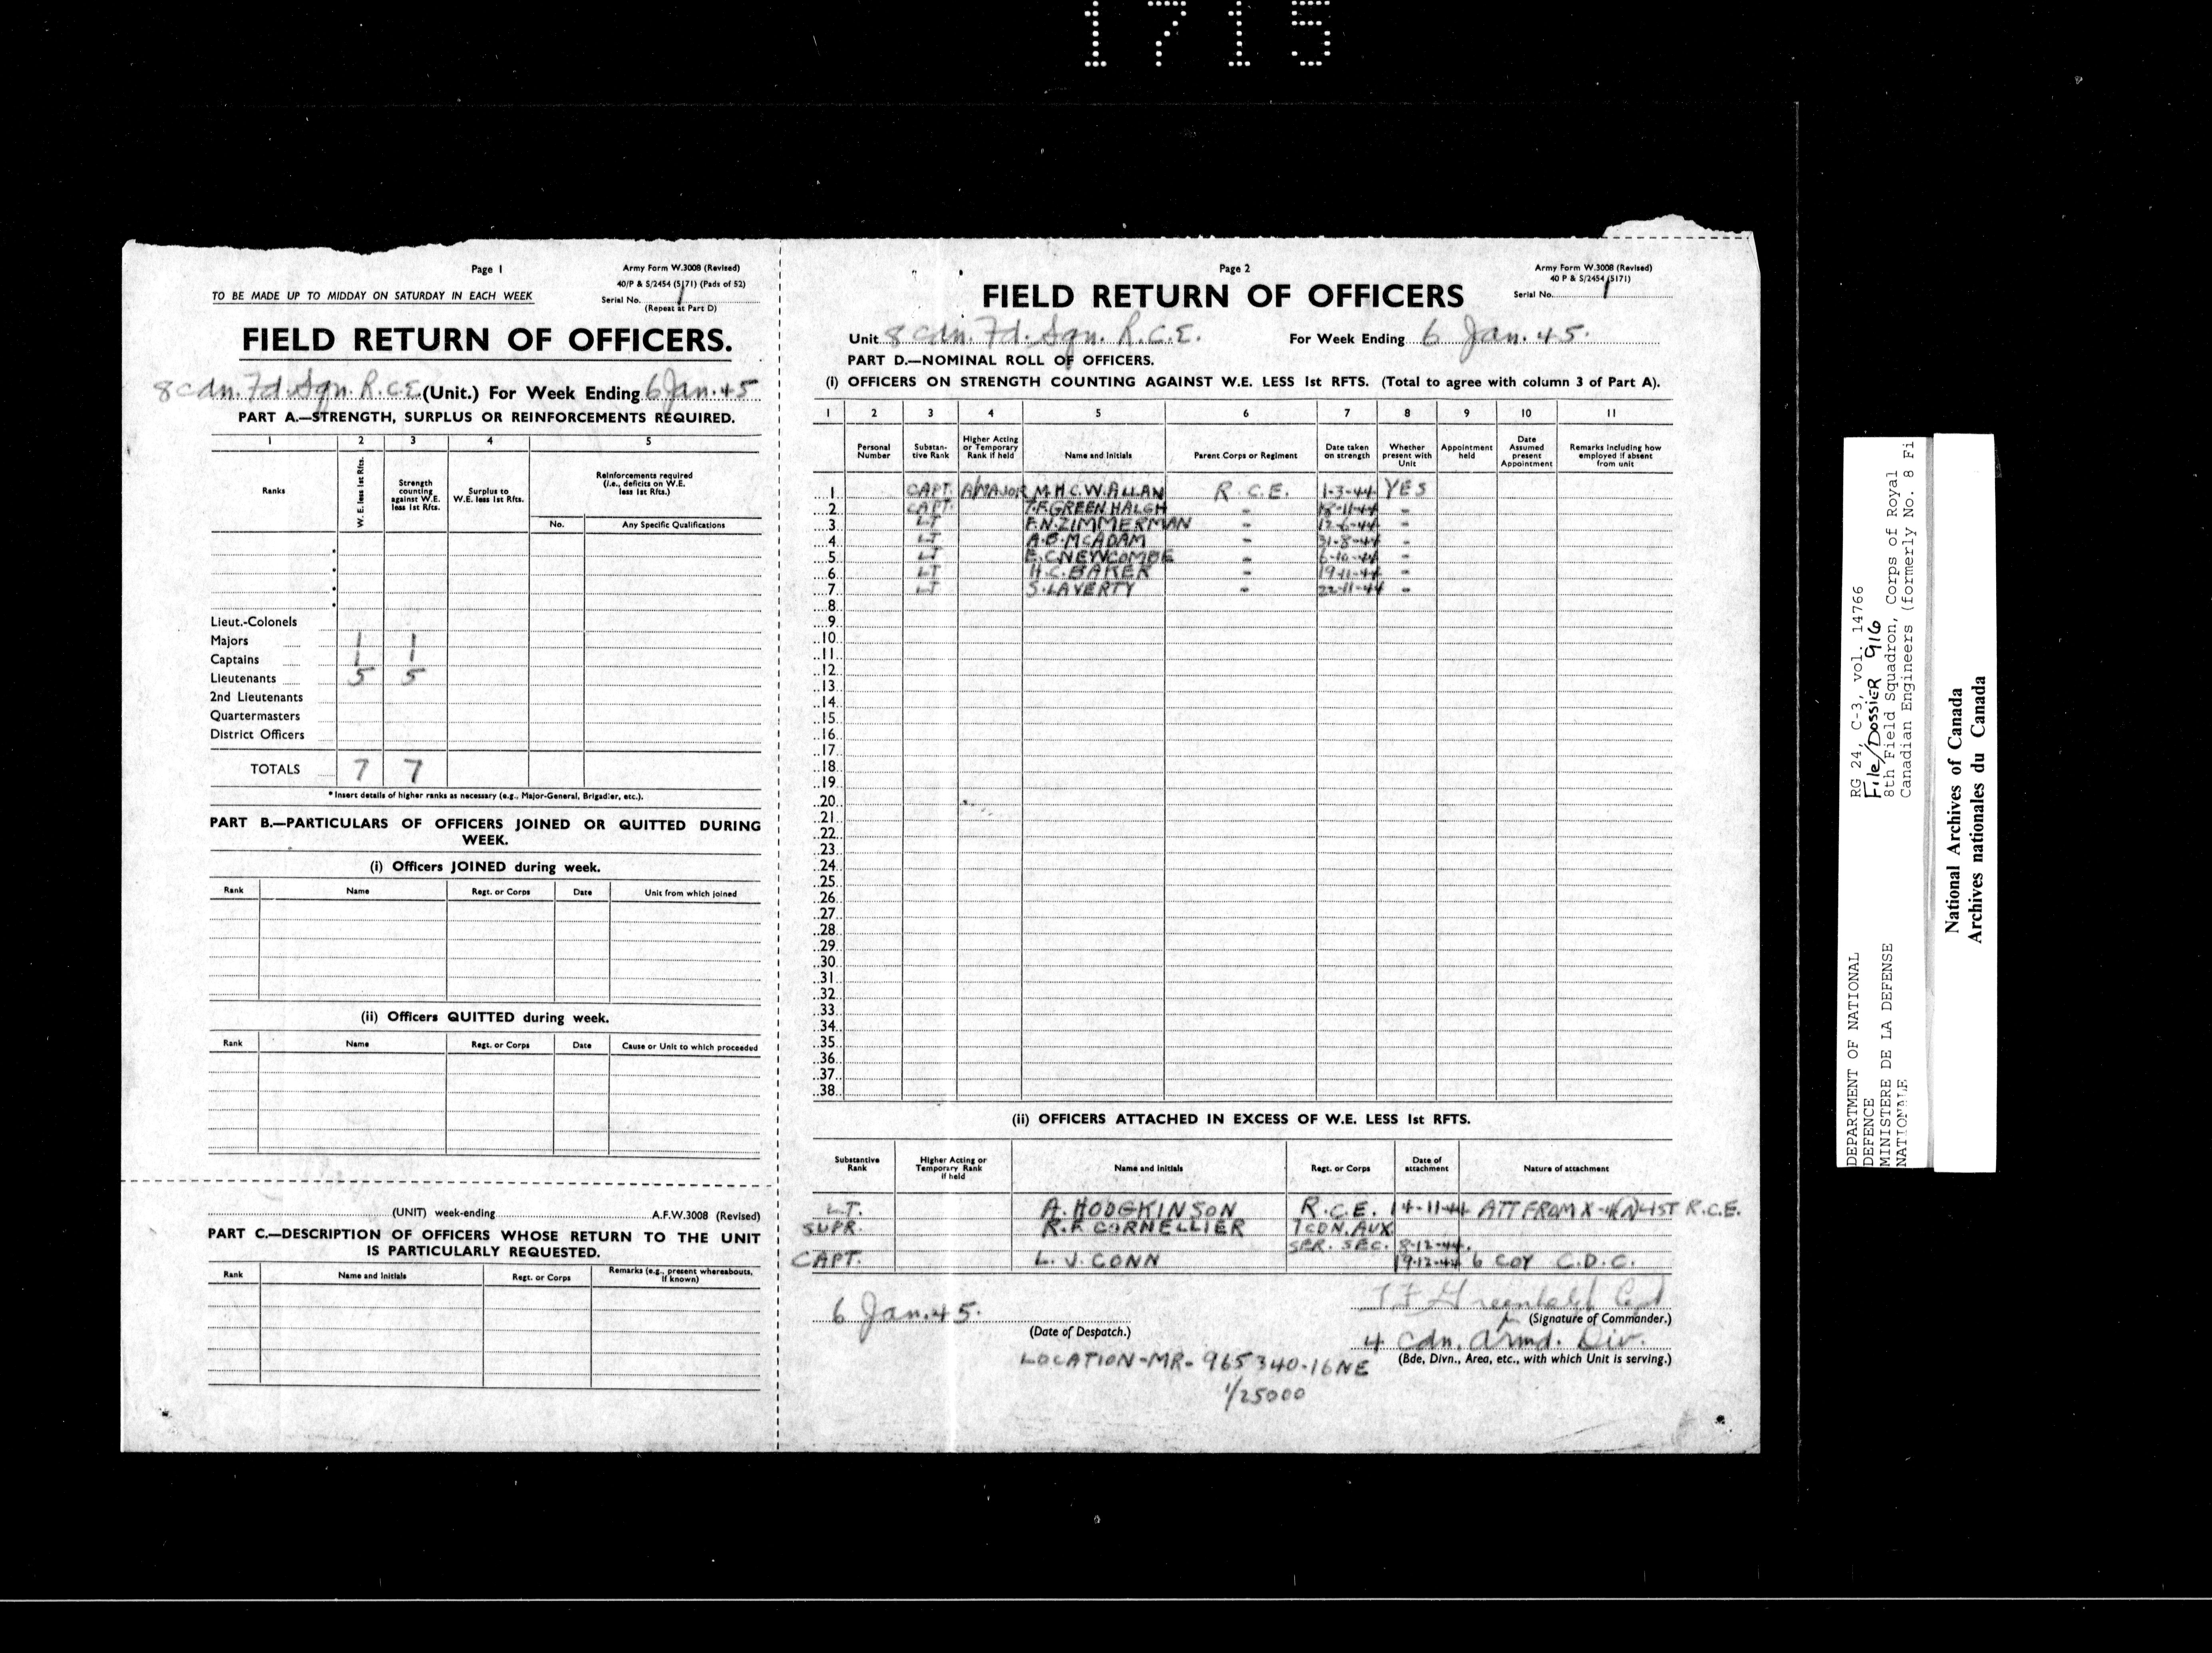 1715
Page 1
Army Form W.3008 (Revised)
40/P & S/2454 (5171) (Pads of 52)
TO BE MADE UP TO MIDDAY ON SATURDAY IN EACH WEEK
Serial No. 1
(Repeat at Part D)
FIELD RETURN OF OFFICERS.
8 Cdn. Fd. Sqn. R.C.E. (Unit.) For Week Ending 6 Jan. 45
PART A.—STRENGTH, SURPLUS OR REINFORCEMENTS REQUIRED.
1 2 3 4 5
Ranks
W. E. less 1st Rfts.
Strength counting against W.E. less 1st Rfts.
Surplus to W.E. less 1st Rfts.
Reinforcements required (i.e., deficits on W.E. less 1st Rfts.)
No. Any Specific Qualifications
*
*
*
*
Lieut.-Colonels
Majors 1 1
Captains 1 1
Lieutenants 5 5
2nd Lieutenants
Quartermasters
District Officers
TOTALS 7 7
* Insert details of higher ranks as necessary (e.g., Major-General, Brigadier, etc.).
PART B.—PARTICULARS OF OFFICERS JOINED OR QUITTED DURING
WEEK.
(i) Officers JOINED during week.
Rank Name Regt. or Corps Date Unit from which joined
(ii) Officers QUITTED during week.
Rank Name Regt. or Corps Date Cause or Unit to which proceeded
(UNIT) week-ending A.F.W.3008 (Revised)
PART C.—DESCRIPTION OF OFFICERS WHOSE RETURN TO THE UNIT
IS PARTICULARLY REQUESTED.
Rank Name and Initials Regt. or Corps Remarks (e.g., present whereabouts, if known)
Page 2
Army Form W.3008 (Revised)
40 P & S/2454 (5171)
Serial No. 1
FIELD RETURN OF OFFICERS
Unit 8 Cdn. Fd. Sqn. R.C.E. For Week Ending 6 Jan. 45.
PART D.—NOMINAL ROLL OF OFFICERS.
(i) OFFICERS ON STRENGTH COUNTING AGAINST W.E. LESS 1st RFTS. (Total to agree with column 3 of Part A).
1 2 3 4 5 6 7 8 9 10 11
Personal Number
Substantive Rank
Higher Acting or Temporary Rank if held
Name and Initials
Parent Corps or Regiment
Date taken on strength
Whether present with Unit
Appointment held
Date Assumed present Appointment
Remarks including how employed if absent from unit
1 CAPT. A/MAJOR M.H.C.W.ALLAN R.C.E. 1-3-44 YES
2 CAPT. T.F.GREENHALGH " 18-11-44 "
3 LT F.N.ZIMMERMAN " 12-6-44 "
4 LT A.B.McADAM " 31-8-44 "
5 LT E.C.NEWCOMBE " 6-10-44 "
6 LT H.C.BAKER " 19-11-44 "
7 LT S.LAVERTY " 22-11-44 "
8
9
10
11
12
13
14
15
16
17
18
19
20
21
22
23
24
25
26
27
28
29
30
31
32
33
34
35
36
37
38
(ii) OFFICERS ATTACHED IN EXCESS OF W.E. LESS 1st RFTS.
Substantive Rank
Higher Acting or Temporary Rank if held
Name and Initials
Regt. or Corps
Date of attachment
Nature of attachment
LT. A. HODGKINSON R.C.E. 14-11-44 ATT FROM X-4(N) LIST R.C.E.
SUPR. R.F. CORNELLIER 1 CDN. AUX
SER. SEC. 8-12-44.
CAPT. L. J. CONN 19-12-44 6 COY C.D.C.
6 Jan. 45. TF Greenhalgh Capt
(Date of Despatch.) (Signature of Commander.)
4 Cdn. Armd. Div.
(Bde, Divn., Area, etc., with which Unit is serving.)
LOCATION-MR-965340-16NE
1/25000
RG 24, C-3, vol. 14766
File/DOSSIER 916
8th Field Squadron, Corps of Royal
Canadian Engineers (formerly No. 8 Fi
DEPARTMENT OF NATIONAL
DEFENCE
MINISTERE DE LA DEFENSE
NATIONALE
National Archives of Canada
Archives nationales du Canada